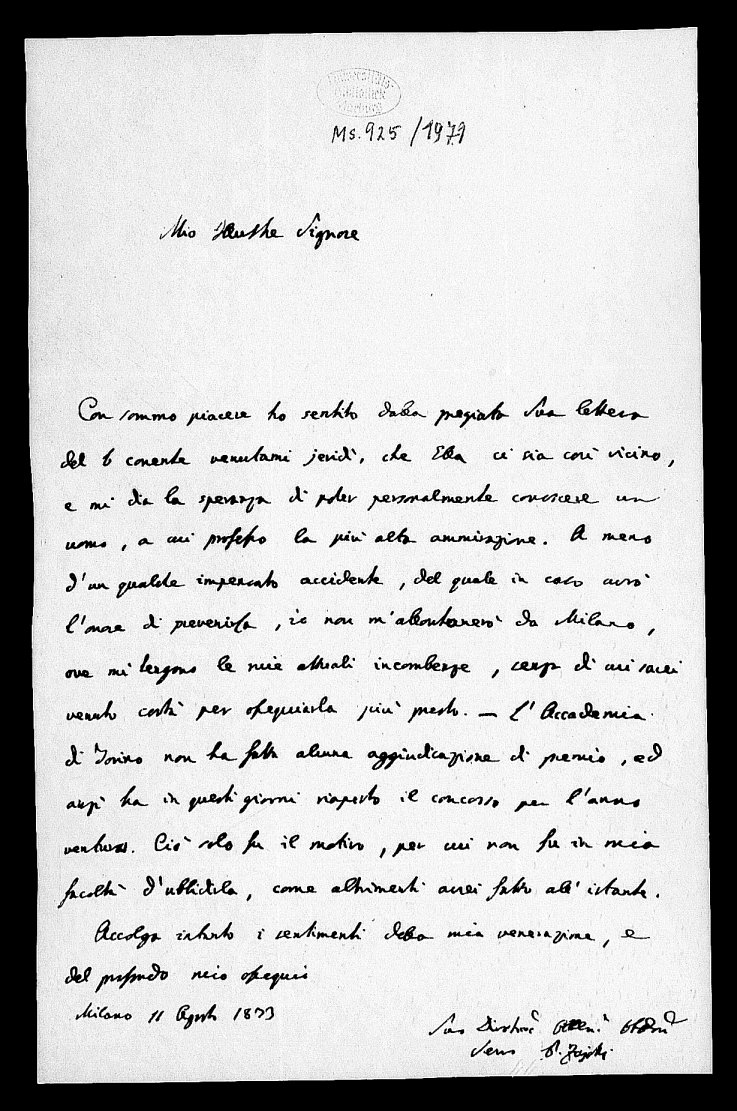 Universitäts
Bibliothek
Marburg
Ms. 925 / 1979
Mio Illustre Signore
Con sommo piacere ho sentito dalla pregiata Sua lettera
del 6 corrente venutami jeridì, che Ella ci sia così vicino,
e mi dia la speranza di poter personalmente conoscere un
uomo, a cui professo la più alta ammirazione. A meno
d'un qualche impensato accidente, del quale in caso avrò
l'onore di prevenirla, io non m'allontanerò da Milano,
ove mi tengono le mie attuali incombenze, senza di cui sarei
venuto costà per ossequiarla più presto. — L'Accademia
di Torino non ha fatta alcuna aggiudicazione di premio, ed
anzi ha in questi giorni riaperto il concorso per l'anno
venturo. Ciò solo fu il motivo, per cui non fu in mia
facoltà d'ubbidirla, come altrimenti avrei fatto all'istante.
Accolga intanto i sentimenti della mia venerazione, e
del profondo mio ossequio
Milano 11 Agosto 1833
Suo
Servo